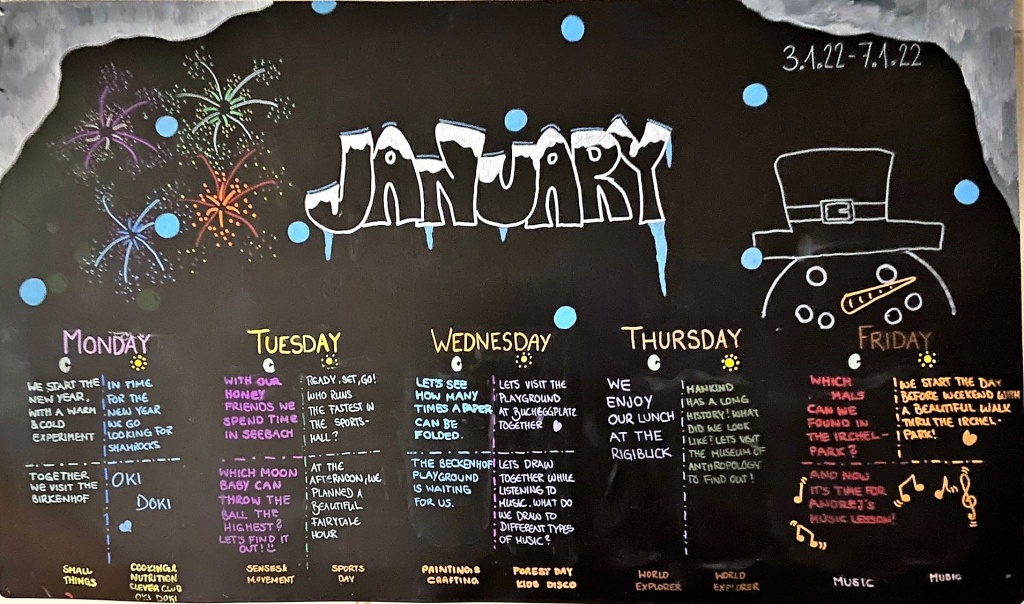 3.1.22-7.1.22
JANUARY
MONDAY
WE START THE
NEW YEAR,
WITH A WARM
& COLD
EXPERIMENT
IN TIME
FOR THE
NEW YEAR
WE GO
LOOKING FOR
SHAMROCKS
TOGETHER
WE VISIT THE
BIRKENHOF
OKI
DOKI
SMALL
THINGS
COOKING &
NUTRITION
CLEVER CLUB
OKI DOKI
TUESDAY
WITH OUR
HONEY
FRIENDS WE
SPEND TIME
IN SEEBACH
READY, SET, GO!
WHO RUNS
THE FASTEST IN
THE SPORTS-
HALL?
WHICH MOON
BABY CAN
THROW THE
BALL THE
HIGHEST?
LET'S FIND IT
OUT!
AT THE
AFTERNOON, WE
PLANNED A
BEAUTIFUL
FAIRYTALE
HOUR
SENSES &
MOVEMENT
SPORTS
DAY
WEDNESDAY
LET'S SEE
HOW MANY
TIMES A PAPER
CAN BE
FOLDED.
LETS VISIT THE
PLAYGROUND
AT BUCHEGGPLATZ
TOGETHER
THE BECKENHOF
PLAYGROUND
IS WAITING
FOR US.
LETS DRAW
TOGETHER WHILE
LISTENING TO
MUSIC. WHAT DO
WE DRAW TO
DIFFERENT TYPES
OF MUSIC?
PAINTING &
CRAFTING
FOREST DAY
KIDS DISCO
THURSDAY
WE
ENJOY
OUR LUNCH
AT THE
RIGIBLICK
MANKIND
HAS A LONG
HISTORY! WHAT
DID WE LOOK
LIKE? LETS VISIT
THE MUSEUM OF
ANTHROPOLOGY
TO FIND OUT!
WORLD
EXPLORER
WORLD
EXPLORER
FRIDAY
WHICH
MALS
CAN WE
FOUND IN
THE IRCHEL-
PARK?
WE START THE DAY
BEFORE WEEKEND WITH
A BEAUTIFUL WALK
THRU THE IRCHEL-
PARK!
AND NOW
IT'S TIME FOR
ANDREJ'S
MUSIC LESSON!
MUSIC
MUSIC